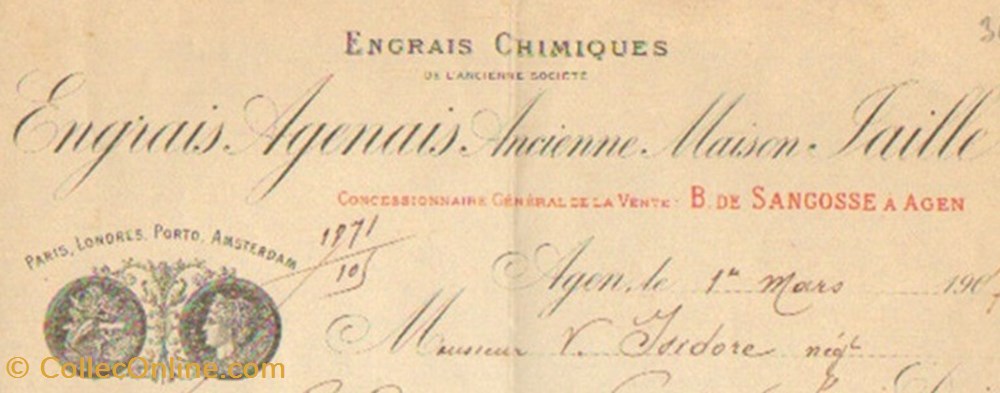 ENGRAIS CHIMIQUES
DE L'ANCIENNE SOCIÉTÉ
Engrais Agenais Ancienne Maison Jaille
CONCESSIONNAIRE GÉNÉRAL DE LA VENTE: B. DE SANGOSSE A AGEN
PARIS, LONDRES, PORTO, AMSTERDAM
1871
105
Agen, le 1er Mars 190
Monsieur V. Isidore négt
© CollecOnline.com